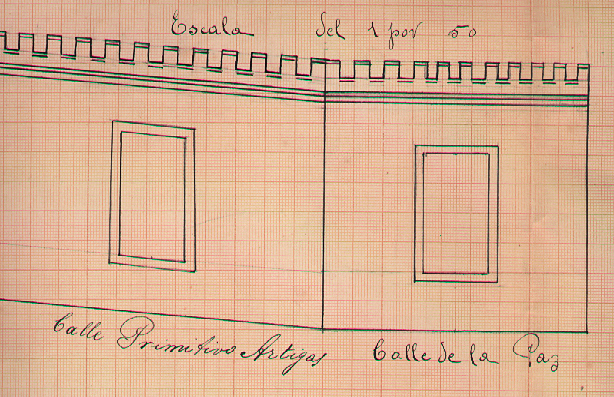 Escala del 1 por 50
Calle Primitivo Artigas
Calle de la Paz